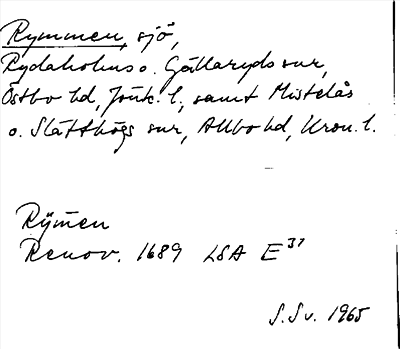 Rymmen, sjö,
Rydaholms o. Gällaryds snr,
Östbo hd, Jönk. l., samt Mistelås
o. Slätthögs snr, Allbo hd, Kron. l.
Rÿm̄en
Renov. 1689 LSA E³⁷
S. Sv. 1965